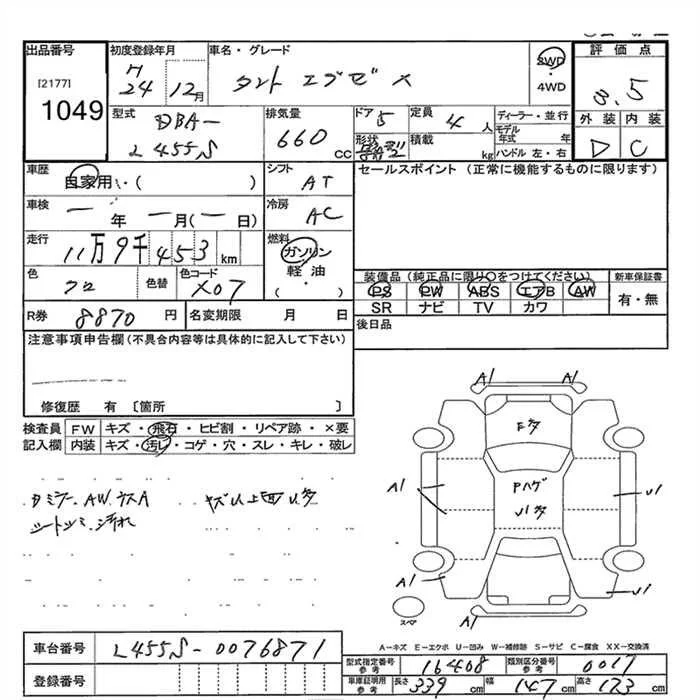 出品番号 初度登録年月 車名・グレード 評価点
[2177] H 24 12月 タント エグゼ 2WD ・ 4WD 3.5
1049 型式 排気量 ドア 定員 ディーラー・並行 外装 内装
DBA- L455S 660 CC 5 4人 モデル年式 年 D C
形状 積載 kg ハンドル 左・右
車歴 自家用・( ) シフト AT セールスポイント (正常に機能するものに限ります)
車検 一年 一月(一日) 冷房 AC
走行 11万9千453 km 燃料 ガソリン 軽油 ・ ( )
色 クロ 色替 色コード X07 装備品 (純正品に限り○をつけてください) 新車保証書
PS PW ABS エアB AW 有・無
SR ナビ TV カワ
R券 8870 円 名変期限 月 日 後日品
注意事項申告欄 (不具合内容等は具体的に記入して下さい)
修復歴 有 〔箇所 〕
検査員 FW キズ・飛石・ヒビ割・リペア跡・×要
記入欄 内装 キズ・汚レ・コゲ・穴・スレ・キレ・破レ
AW
シートシミ 汚れ
A1 A1
A1 Pハゲ U1
A1 U1
スペア
A-キズ E-エクボ U-凹み W-補修跡 S-サビ C-腐食 XX-交換済
車台番号 L455S-0076871
型式指定番号 参考 16408 類別区分番号 参考 0017
登録番号 車庫証明用 参考 長さ 339 cm 幅 147 cm 高さ 173 cm